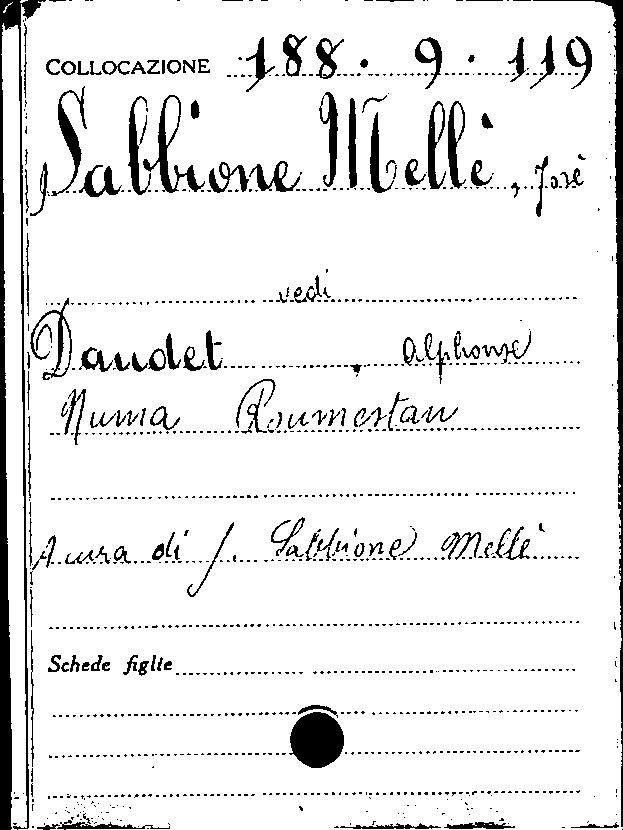 COLLOCAZIONE 188. 9. 119
Sabbione Mellè, Josè
vedi
Daudet, Alphonse
Numa Roumestan
A cura di J. Sabbione Mellè
Schede figlie